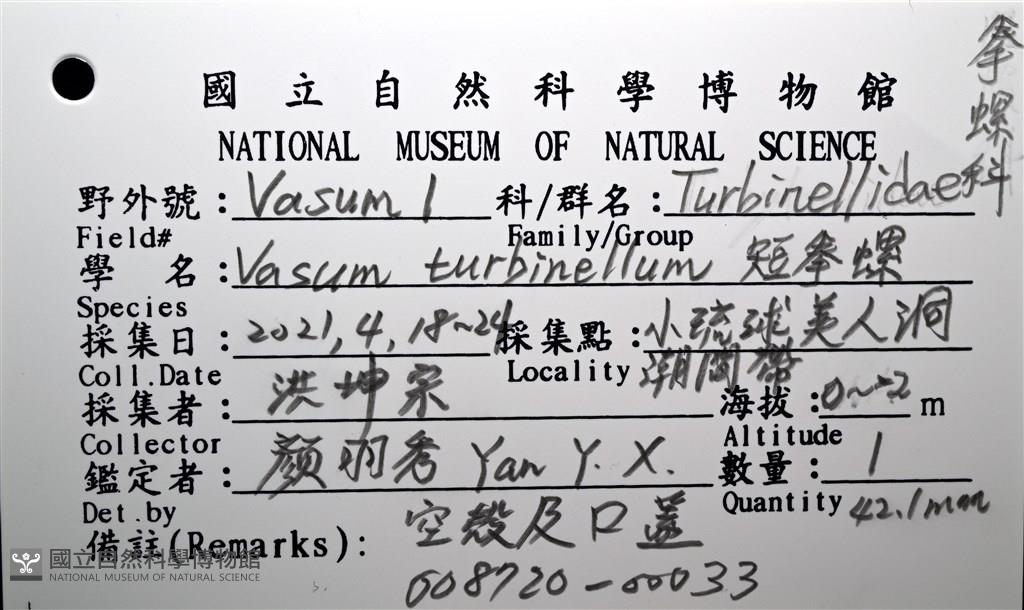 國立自然科學博物館
NATIONAL MUSEUM OF NATURAL SCIENCE
拳螺科
野外號：Vasum 1 科/群名：Turbinellidae
Field# Family/Group
學名：Vasum turbinellum 短拳螺
Species
採集日：2021,4,18~24 採集點：小琉球美人洞
潮間帶
Coll.Date Locality
採集者：洪坤宗 海拔：0~-2 m
Collector Altitude
鑑定者：顏羽秀 Yan Y. X. 數量：1
Det.by Quantity 42.1mm
備註(Remarks)：空殼及口蓋
008720-00033
國立自然科學博物館
NATIONAL MUSEUM OF NATURAL SCIENCE